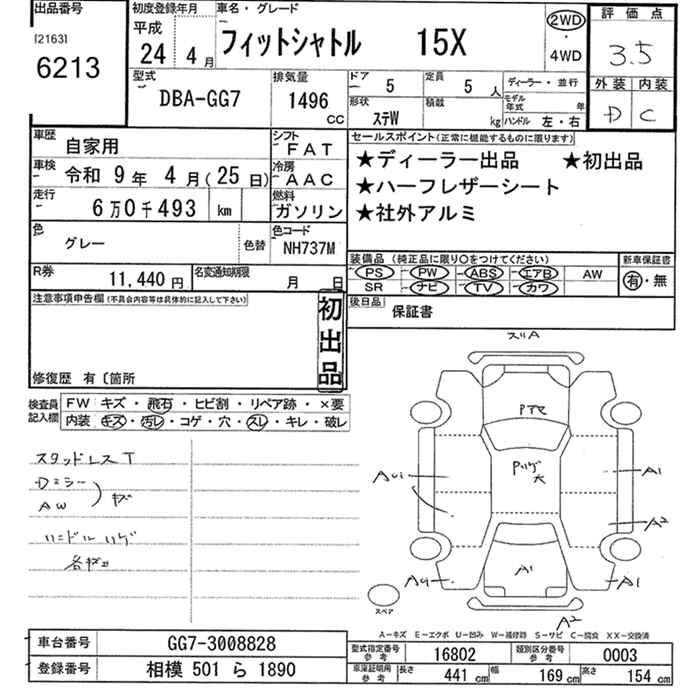 出品番号
[2163]
6213
初度登録年月
平成
24 年 4 月
車名・グレード
フィットシャトル 15X
2WD
・
4WD
評価点
3.5
外装 内装
D C
型式
DBA-GG7
排気量
1496 CC
ドア 5
定員 5 人
形状 ステW
積載 kg
ディーラー・並行
モデル年式 年
ハンドル 左・右
車歴 自家用
車検 令和 9 年 4 月 (25 日)
走行 6万0千493 km
シフト FAT
冷房 AAC
燃料 ガソリン
色 グレー 色替
色コード NH737M
R券 11,440 円
名変通知期限 月 日
セールスポイント(正常に機能するものに限ります)
★ディーラー出品 ★初出品
★ハーフレザーシート
★社外アルミ
装備品 (純正品に限り〇をつけてください)
PS PW ABS エアB AW
SR ナビ TV カワ
新車保証書
有・無
後日品 保証書
注意事項申告欄(不具合内容等は具体的に記入して下さい)
初出品
修復歴 有〔箇所
検査員記入欄
FW キズ・飛石・ヒビ割・リペア跡・×要
内装 キズ・汚レ・コゲ・穴・スレ・キレ・破レ
スタッドレスT
Dミラー
AW
キズ
ハンドルハゲ
スリA
A1
A2
A1
A1
A2
スペア
A-キズ E-エクボ U-凹み W-補修跡 S-サビ C-腐食 XX-交換済
車台番号 GG7-3008828
登録番号 相模 501 ら 1890
型式指定番号 参考 16802
類別区分番号 参考 0003
車庫証明用 参考 長さ 441 cm 幅 169 cm 高さ 154 cm